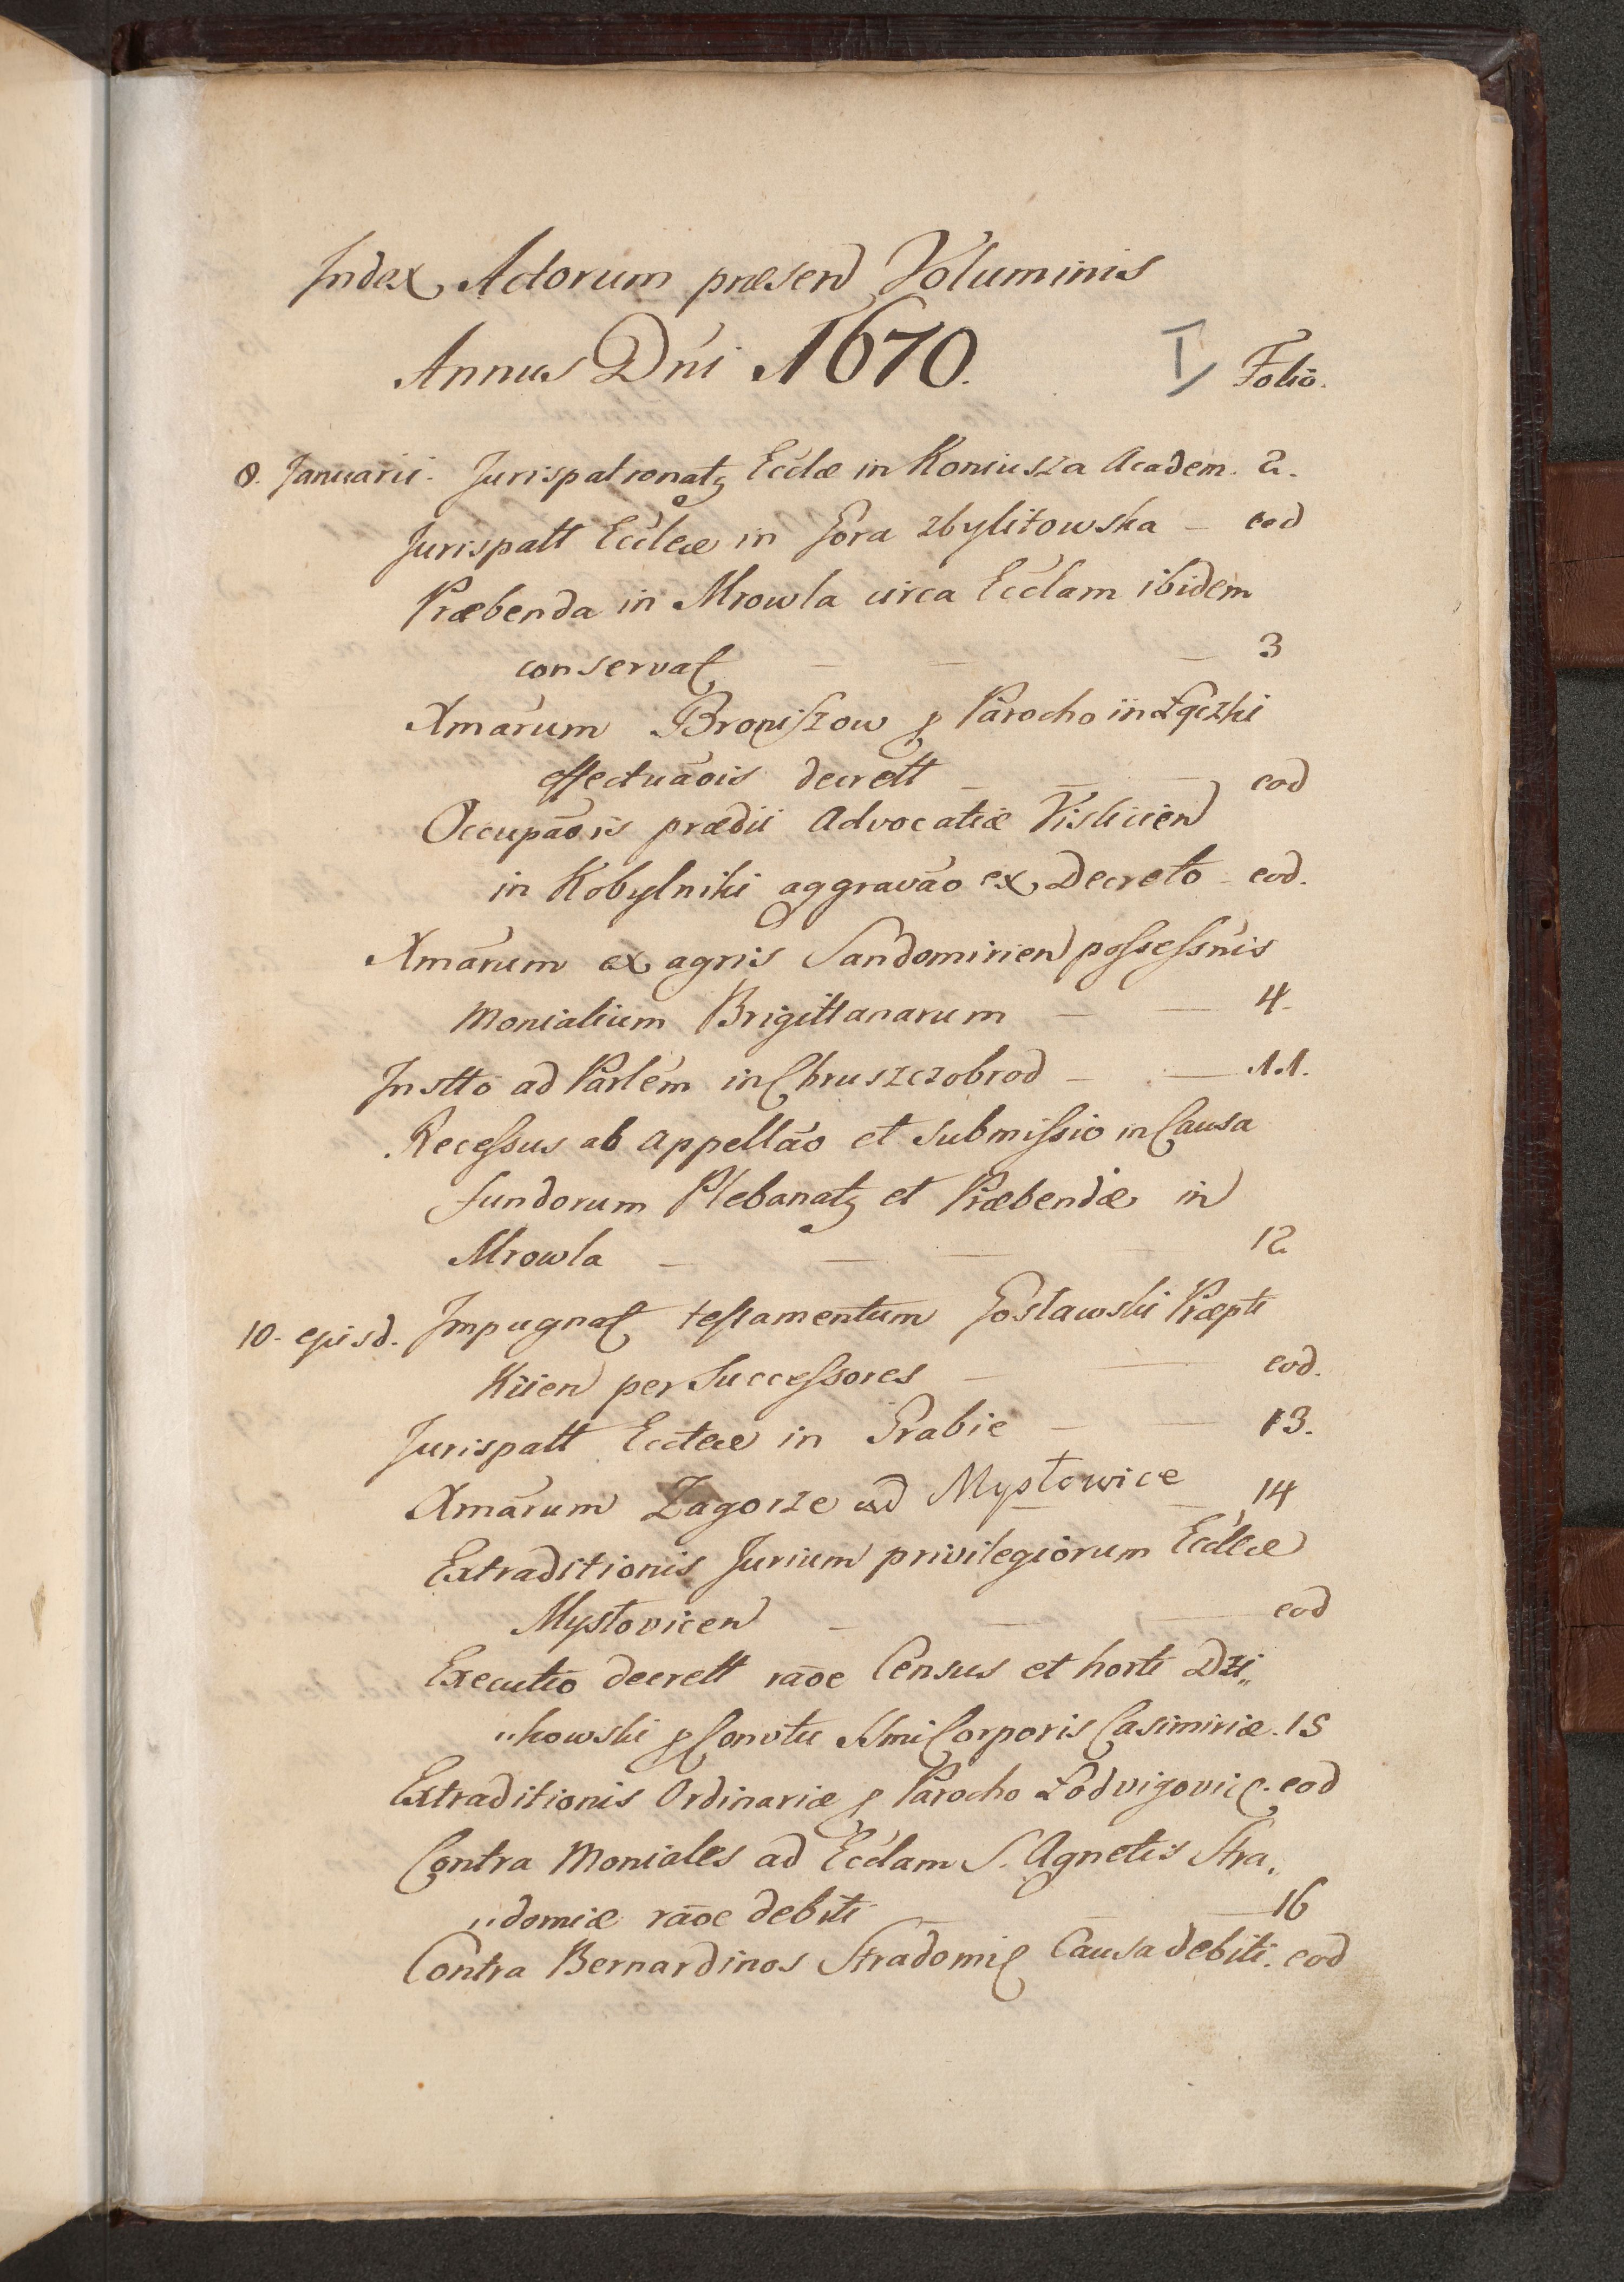 Index Actorum præsen Voluminis
Annus Dni 1670. I, Folio.
8. Januarii. Jurispatronatq Ecclæ in Koniusza Academ. 2.
Jurispatt Eccleæ in Gora zbylitowska – eod
Præbenda in Mrowla circa Ecclam ibidem
conservat – – – 3
Xmarum Broniszow p Parocho in Łączki
effectuaōis decrett – – – eod
Occupaōis prædii Advocatiæ Vislicien
in Kobylniki aggravaō ex Decreto – eod.
Xmarum ex agris Sandomirien possessnis
Monialium Brigittanarum – – 4.
Instto ad Partem in Chruszczobrod – – 11.
Recessus ab Appellaō et submissio in Causa
fundorum Plebanatq et Præbendæ in
Mrowla – – – – 12
10. ejusd. Impugnat testamentum Gosławski Præpti
Kiien per Successores – – eod.
Jurispatt Eccleæ in Grabie – – 13.
Xmarum Zagorze ad Mysłowice – 14
Extraditionis Jurium privilegiorum Eccleæ
Mysłovicen – – – eod
Executio decrett raōe Census et horti Dzi„
„kowski p Convtu SSmi Corporis Casimiriæ. 15
Extraditionis Ordinariæ p Parocho Łodvigovic. eod
Contra Moniales ad Ecclam S. Agnetis Stra„
„domiæ raōe debiti – – – 16
Contra Bernardinos Stradomi Causa debiti. eod